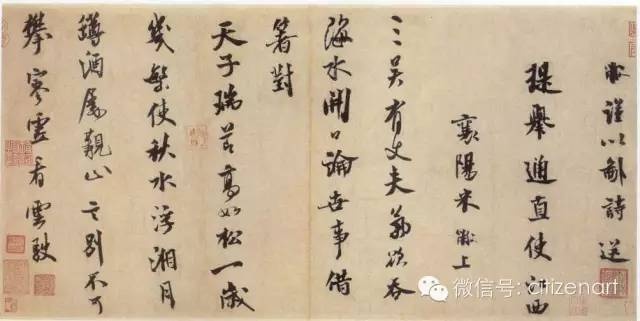 黻謹以鄙詩送
提舉通直使江西
襄陽米黻上
三吳有丈夫氣欲吞
海水開口論世事借
箸對
天子瑞節高如松一歲
幾繁使秋水浮湘月
罇酒屬靚山言別不可
攀寒雲看雲駛
微信号: citizenart